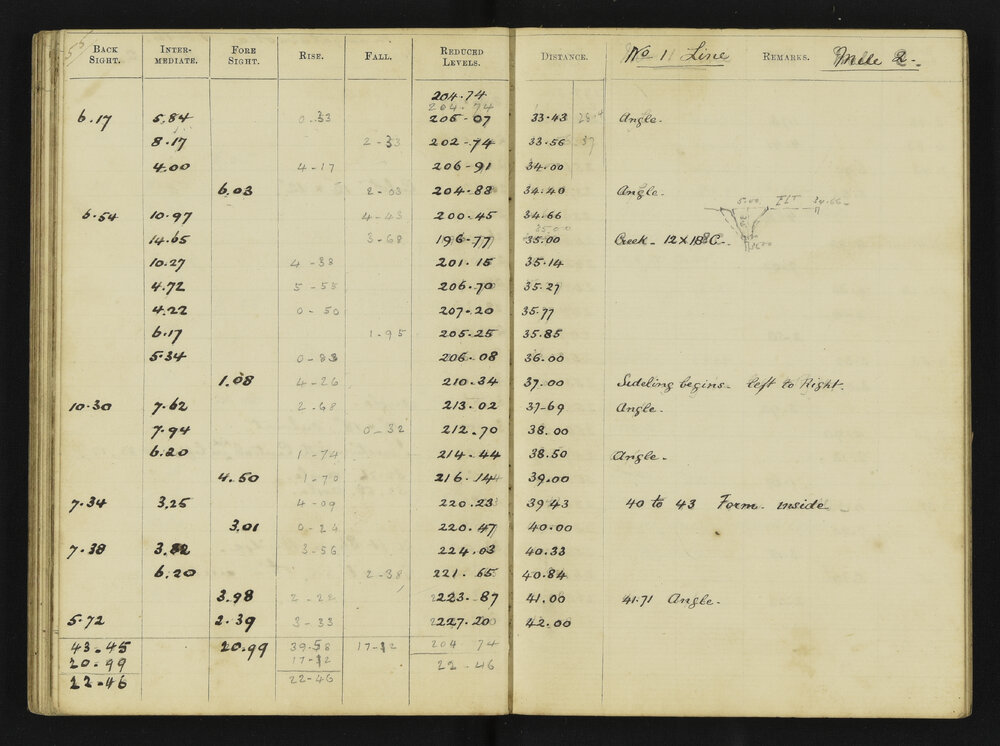 55
BACK SIGHT. INTER-MEDIATE. FORE SIGHT. RISE. FALL. REDUCED LEVELS. DISTANCE. No 1 Line REMARKS. Mile 2.
204.74
204.74
6.17 5.84 0.33 205.07 33.43 Angle.
8.17 2-33 202-74 33.56 37
4.00 4-17 206-91 34.00
6.03 2-03 204.88 34.40 Angle.
5.00 FLT 34.66
6.54 10.97 4-43 200.45 34.66
35.00
14.65 3-68 196.77 35.00 Creek - 12 x 18 C.
10.27 4-38 201.15 35.14
4.72 5-55 206.70 35.27
4.22 0-50 207.20 35.77
6.17 1.95 205.25 35.85
5.34 0-83 206.08 36.00
1.08 4-26 210.34 37.00 Sideling begins - left to Right.
10.30 7.62 2.68 213.02 37-69 Angle.
7.94 0-32 212.70 38.00
6.20 1-74 214.44 38.50 Angle.
4.50 1-70 216.14 39.00
7.34 3.25 4-09 220.23 39 43 40 to 43 Form inside
3.01 0-24 220.47 40.00
7.38 3.82 3-56 224.03 40.33
6.20 2-38 221.65 40.84
3.98 2-22 223.87 41.00 41.71 Angle.
5.72 2.39 3-33 227.20 42.00
43.45 20.99 39.58 17-12 204 74
20.99 17-12 22-46
22-46 22-46